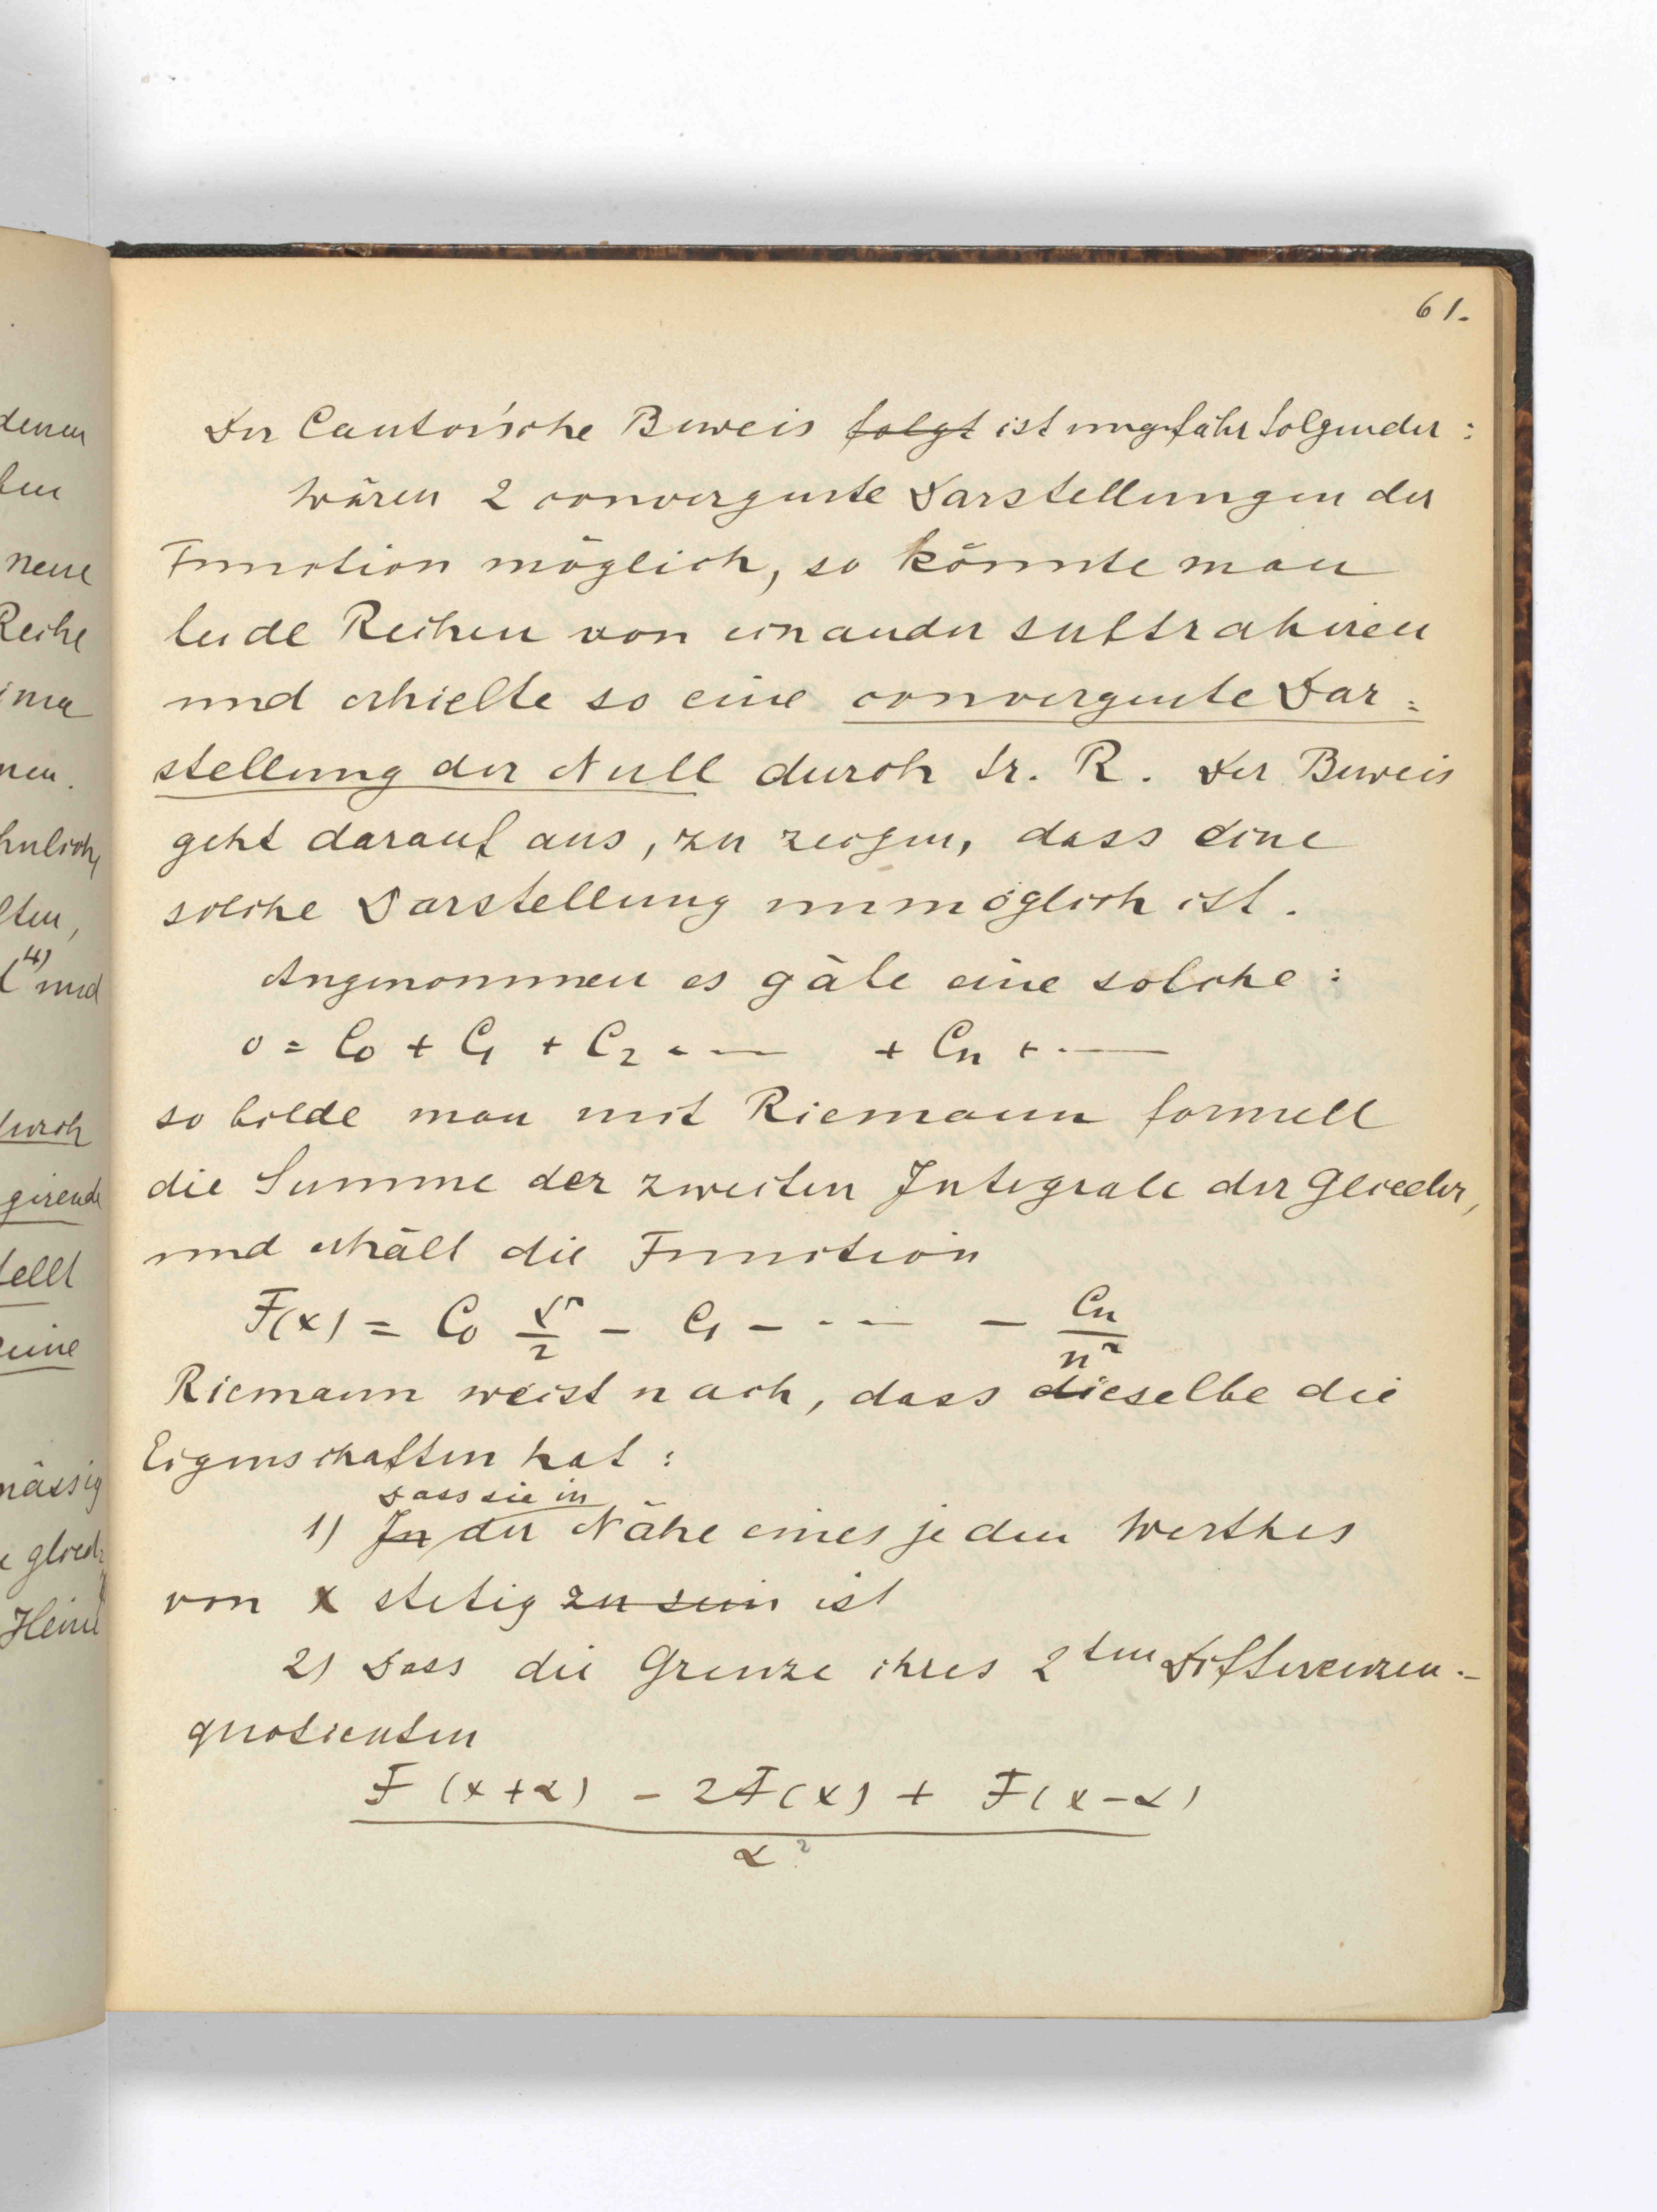 61.
Der Cantor'sche Beweis folgt ist ungefähr folgender:
Wären 2 convergente Darstellungen der
Function möglich, so könnte man
beide Reihen von einander subtrahiren
und erhielte so eine convergente Dar=
stellung der Null durch tr. R. Der Beweis
geht darauf aus, zu zeigen, dass eine
solche Darstellung unmöglich ist.
Angenommen es gäbe eine solche:
0 = C₀ + C₁ + C₂ + ... + Cₙ + ...
so bilde man mit Riemann formell
die Summe der zweiten Integrale der Glieder,
und erhält die Function
F(x) = C₀ x²/2 − C₁ − ... − Cₙ/n²
Riemann weist nach, dass dieselbe die
Eigenschaften hat:
Dass sie in
1) In der Nähe eines jeden Werthes
von x stetig zu sein ist
2) Dass die Grenze ihres 2ten Differenzen-
quotienten
F(x+α) − 2F(x) + F(x−α)
α²
denen
ben
neue
Reihe
nen.
hnlich,
lten,
4)
und
durch
girende
tellt
eine
mässig
glied
Heine